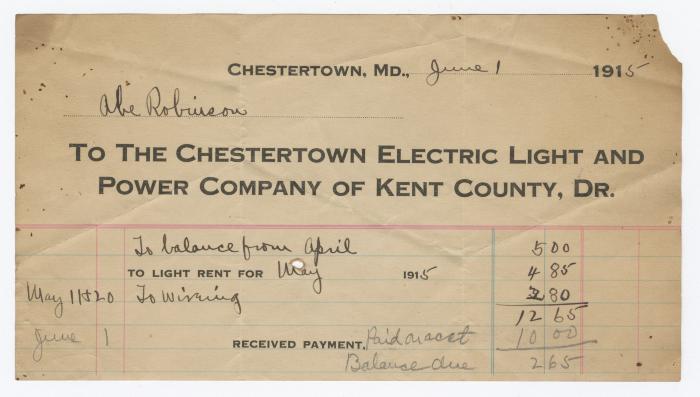 CHESTERTOWN, MD., June 1 1915
Abe Robinson
TO THE CHESTERTOWN ELECTRIC LIGHT AND
POWER COMPANY OF KENT COUNTY, DR.
To balance from April 5 00
TO LIGHT RENT FOR May 1915 4 85
May 11 & 20 To Wireing 2 80
12 65
June 1 RECEIVED PAYMENT, Paid on acct 10 00
Balance due 2 65